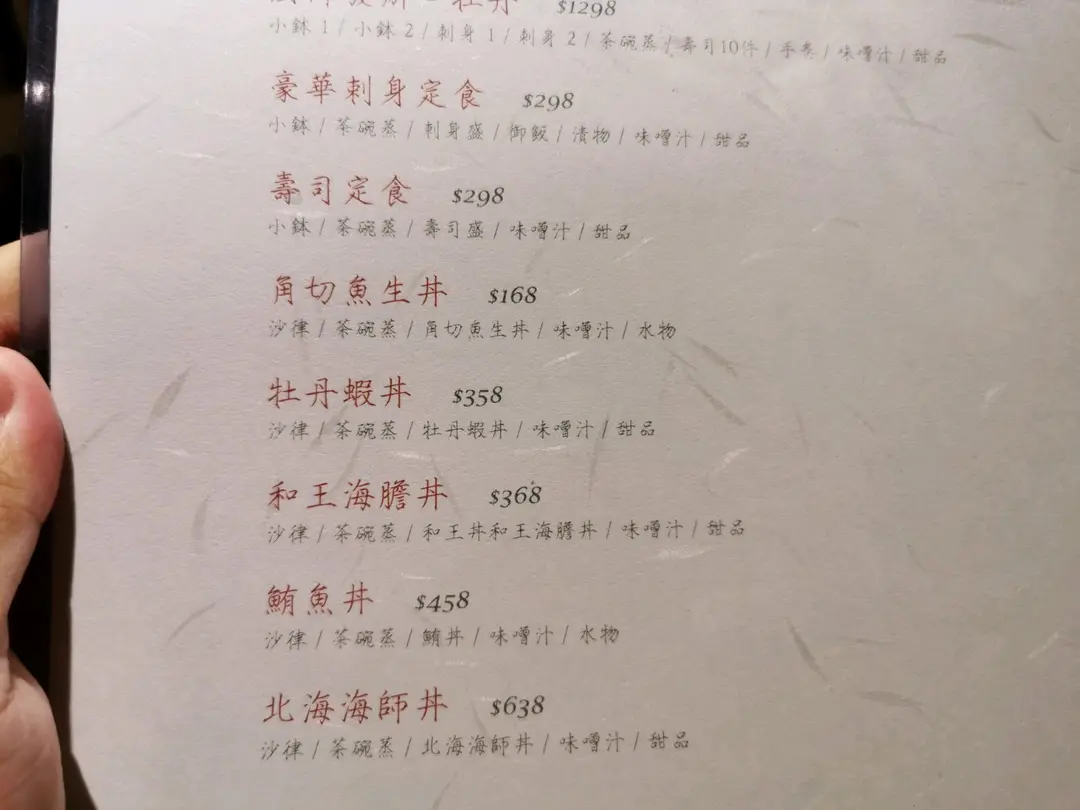 牡丹 $1298
小鉢 1 / 小鉢 2 / 刺身 1 / 刺身 2 / 茶碗蒸 / 壽司10件 / 手卷 / 味噌汁 / 甜品
豪華刺身定食 $298
小鉢 / 茶碗蒸 / 刺身盛 / 御飯 / 漬物 / 味噌汁 / 甜品
壽司定食 $298
小鉢 / 茶碗蒸 / 壽司盛 / 味噌汁 / 甜品
角切魚生丼 $168
沙律 / 茶碗蒸 / 角切魚生丼 / 味噌汁 / 水物
牡丹蝦丼 $358
沙律 / 茶碗蒸 / 牡丹蝦丼 / 味噌汁 / 甜品
和王海膽丼 $368
沙律 / 茶碗蒸 / 和王丼和王海膽丼 / 味噌汁 / 甜品
鮪魚丼 $458
沙律 / 茶碗蒸 / 鮪丼 / 味噌汁 / 水物
北海海師丼 $638
沙律 / 茶碗蒸 / 北海海師丼 / 味噌汁 / 甜品